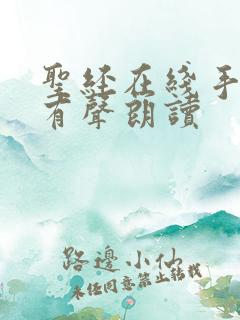 聖經在綫手
有聲朗讀
路邊小仙
未经同意禁止转载